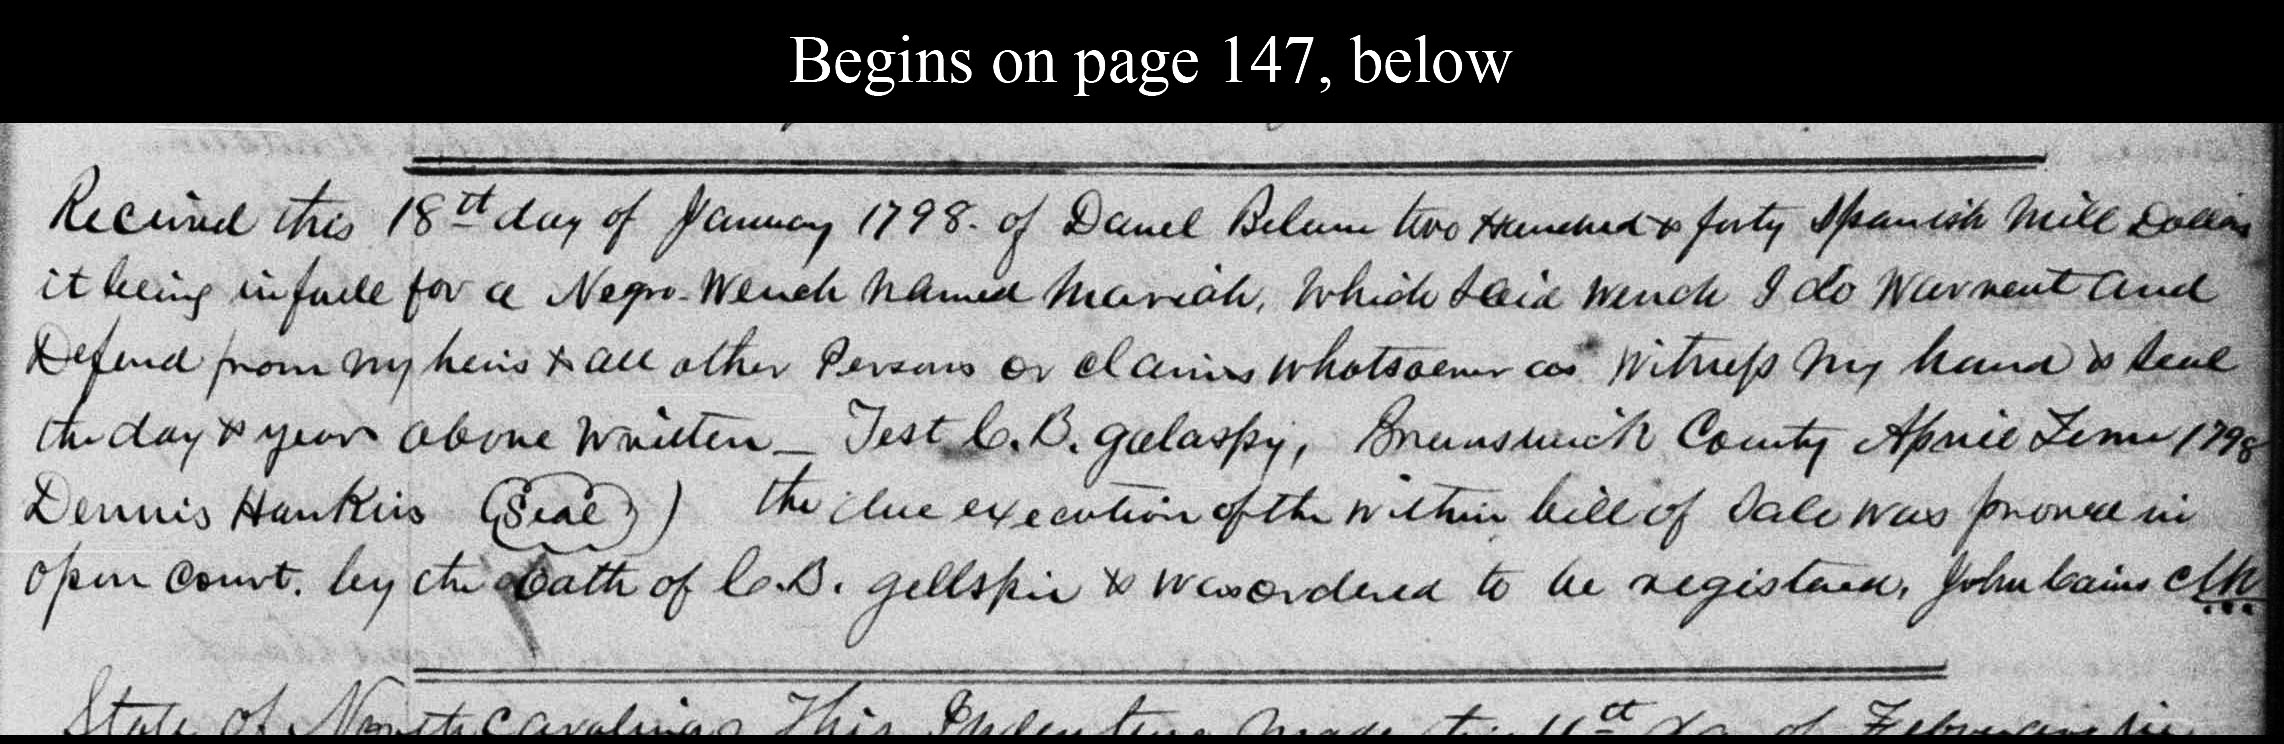 Begins on page 147, below
Received this 18th day of January 1798. of Danel Belum two Hundred & forty Spanish Mill Dollars
it being in full for a Negro Wench named Mariah, Which Said Wench I do Warrent and
Defend from my heirs & all other Persons or claims whatsoever as Witness my hand & Seal
the day & year above Written _ Test C. B. galaspy, Brunswick County April Term 1798
Dennis Hankins (Seal) ) the due execution of the within bill of Sale was proved in
open court. by the oath of C. B. gellspie & was ordered to be registered, John Cains Clk
State of North Carolina This Indenture made the 11th Day of February in